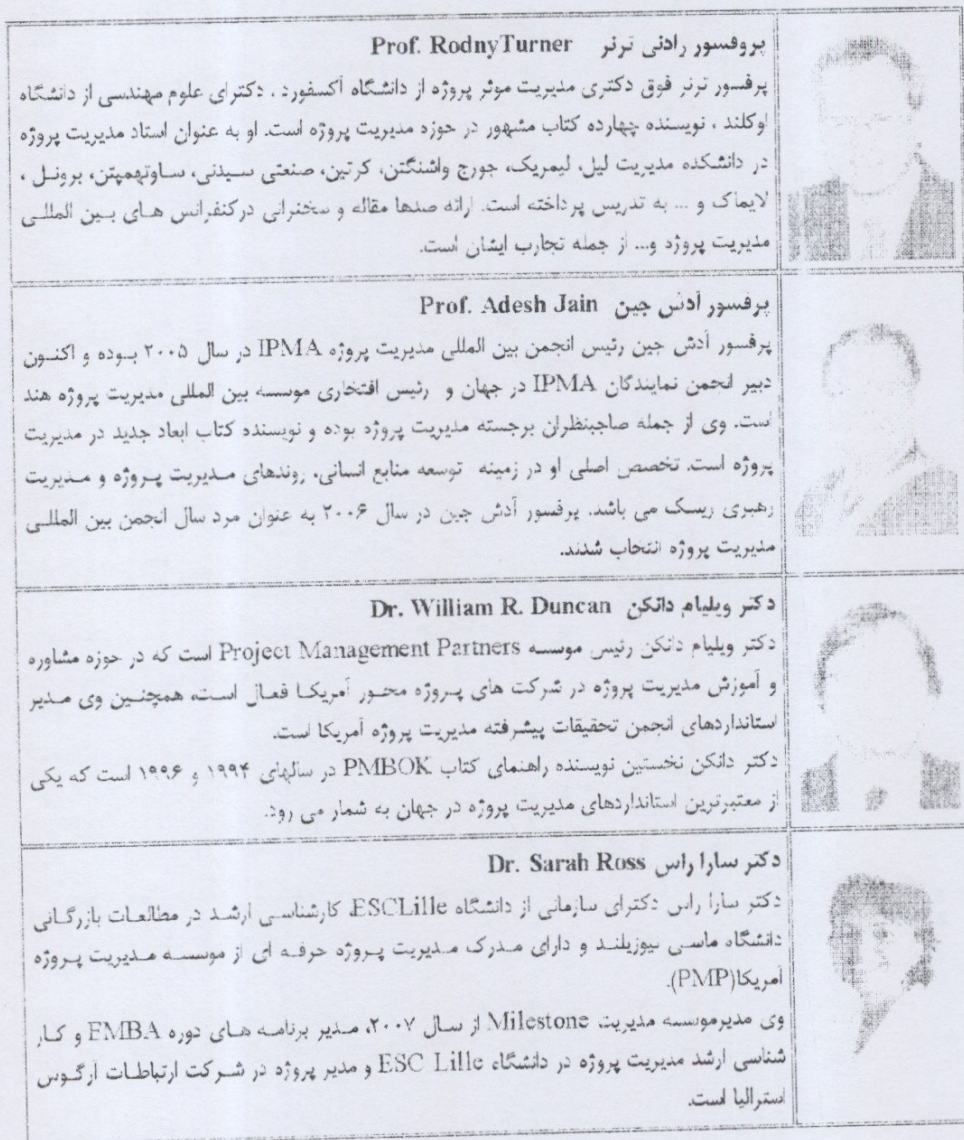 پروفسور رادنی ترنر Prof. RodnyTurner
پرفسور ترنر فوق دکتری مدیریت موثر پروژه از دانشگاه آکسفورد ، دکترای علوم مهندسی از دانشگاه
اوکلند ، نویسنده چهارده کتاب مشهور در حوزه مدیریت پروژه است. او به عنوان استاد مدیریت پروژه
در دانشکده مدیریت لیل، لیمریک، جورج واشنگتن، کرتین، صنعتی سیدنی، ساوتهمپتن، برونل ،
لایماک و ... به تدریس پرداخته است. ارائه صدها مقاله و سخنرانی درکنفرانس های بین المللی
مدیریت پروژه و... از جمله تجارب ایشان است.
پرفسور آدش جین Prof. Adesh Jain
پرفسور آدش جین رئیس انجمن بین المللی مدیریت پروژه IPMA در سال ۲۰۰۵ بوده و اکنون
دبیر انجمن نمایندگان IPMA در جهان و رئیس افتخاری موسسه بین المللی مدیریت پروژه هند
است. وی از جمله صاحبنظران برجسته مدیریت پروژه بوده و نویسنده کتاب ابعاد جدید در مدیریت
پروژه است. تخصص اصلی او در زمینه توسعه منابع انسانی، روندهای مدیریت پروژه و مدیریت
رهبری ریسک می باشد. پرفسور آدش جین در سال ۲۰۰۶ به عنوان مرد سال انجمن بین المللی
مدیریت پروژه انتخاب شدند.
دکتر ویلیام دانکن Dr. William R. Duncan
دکتر ویلیام دانکن رئیس موسسه Project Management Partners است که در حوزه مشاوره
و آموزش مدیریت پروژه در شرکت های پروژه محور آمریکا فعال است، همچنین وی مدیر
استانداردهای انجمن تحقیقات پیشرفته مدیریت پروژه آمریکا است.
دکتر دانکن نخستین نویسنده راهنمای کتاب PMBOK در سالهای ۱۹۹۴ و ۱۹۹۶ است که یکی
از معتبرترین استانداردهای مدیریت پروژه در جهان به شمار می رود.
دکتر سارا راس Dr. Sarah Ross
دکتر سارا راس دکترای سازمانی از دانشگاه ESCLille، کارشناسی ارشد در مطالعات بازرگانی
دانشگاه ماسی نیوزیلند و دارای مدرک مدیریت پروژه حرفه ای از موسسه مدیریت پروژه
آمریکا(PMP).
وی مدیرموسسه مدیریت Milestone از سال ۲۰۰۷، مدیر برنامه های دوره EMBA و کار
شناسی ارشد مدیریت پروژه در دانشگاه ESC Lille و مدیر پروژه در شرکت ارتباطات آرگوس
استرالیا است.